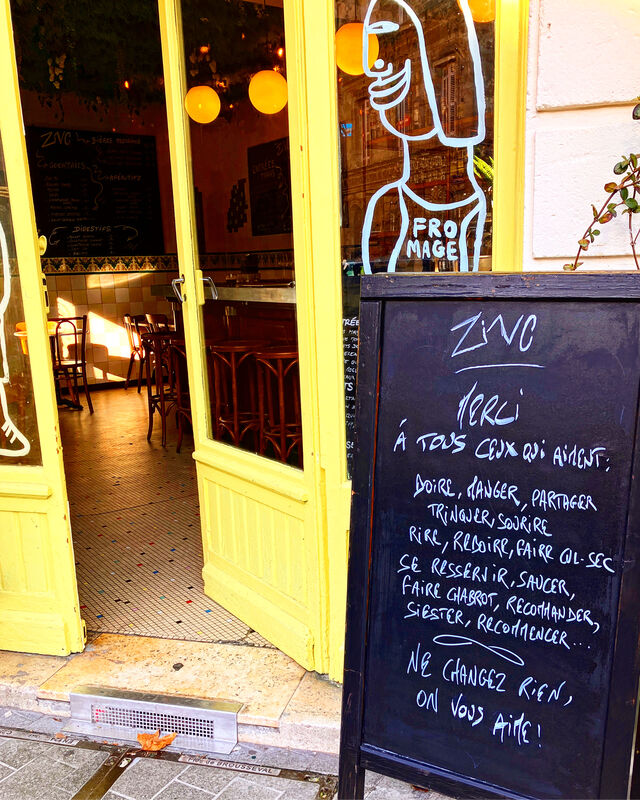 ZiNC
DIGESTIFS
FRO
MAGE
ZiNC
MERCi
À TOUS CEUX QUI AIMENT:
BOIRE, MANGER, PARTAGER
TRINQUER, SOURIRE
RIRE, REBOIRE, FAIRE CUL-SEC
SE RESSERVIR, SAUCER,
FAIRE CHABROT, RECOMMANDER,
SIESTER, RECOMMENCER...
NE CHANGEZ RIEN,
ON VOUS AIME!
BROUSSEVAL